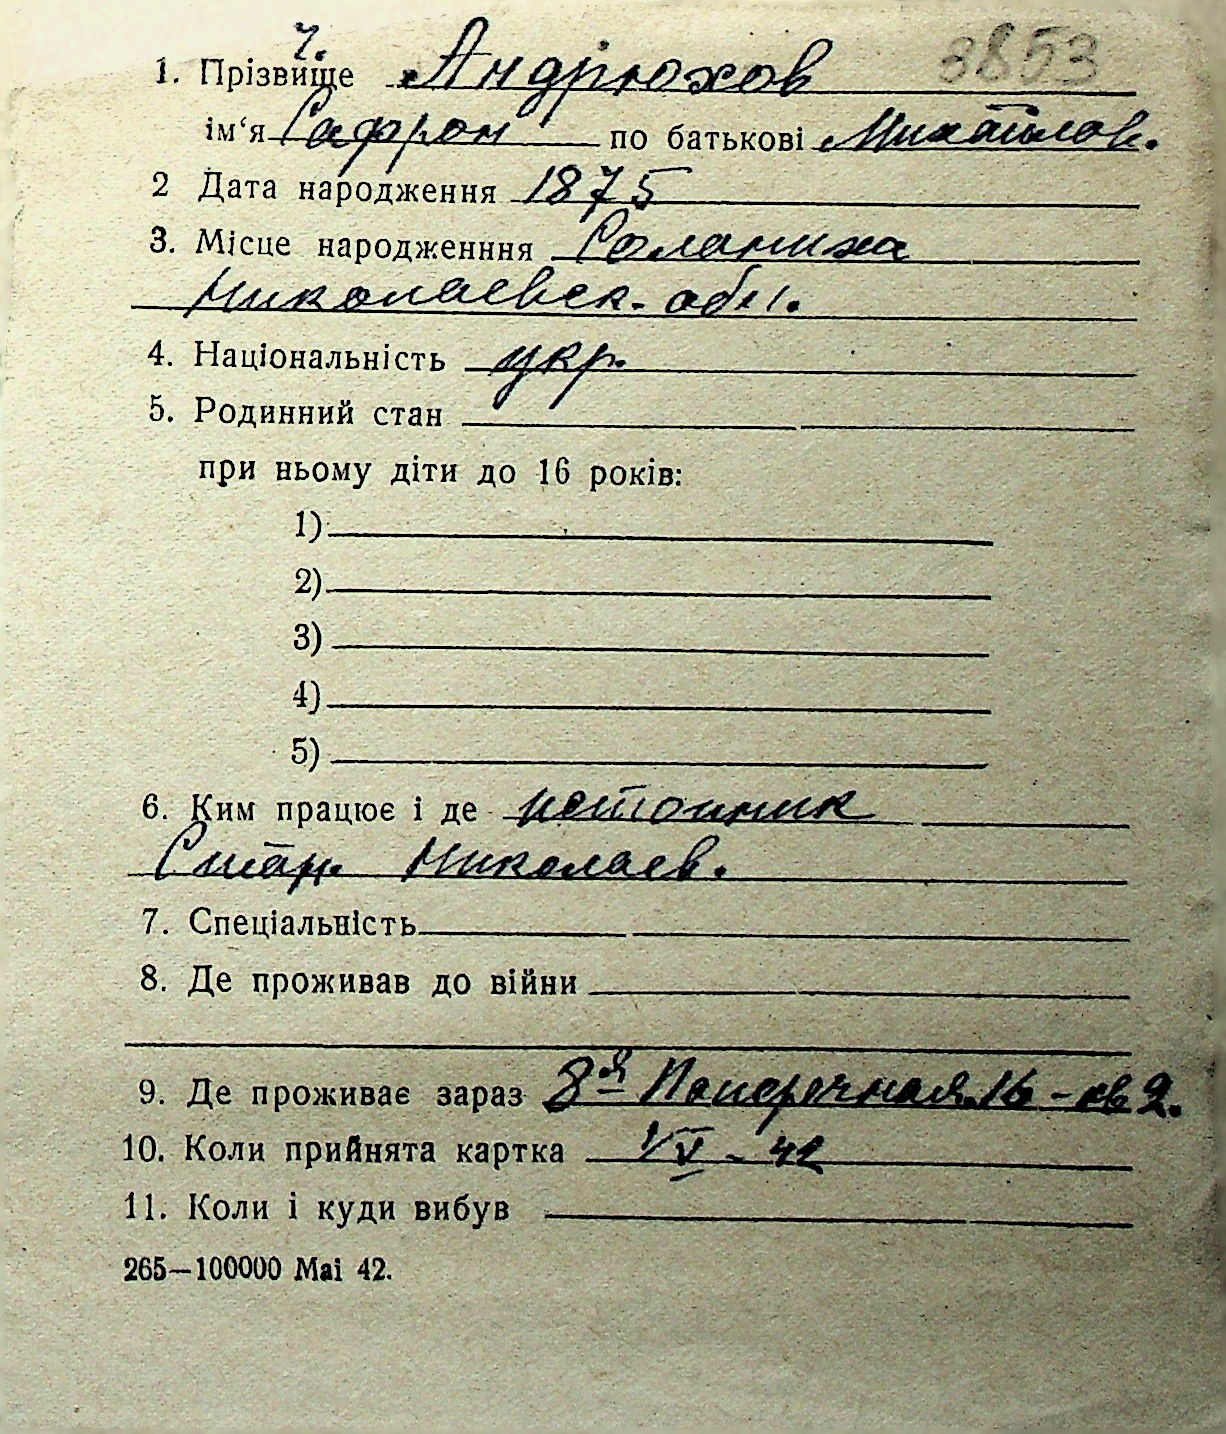 ч.
1. Прізвище Андрюхов 3853
ім‘я Сафрон по батькові Михайлов.
2 Дата народження 1875
3. Місце народженння Соланиха
Николаевск. обл.
4. Національність укр.
5. Родинний стан
при ньому діти до 16 років:
1)
2)
3)
4)
5)
6. Ким працює і де истопник
Стан. Николаев.
7. Спеціальність
8. Де проживав до війни
9. Де проживає зараз 8я Поперечная 16 - кв 2.
10. Коли прийнята картка 1/V - 42
11. Коли і куди вибув
265—100000 Mai 42.